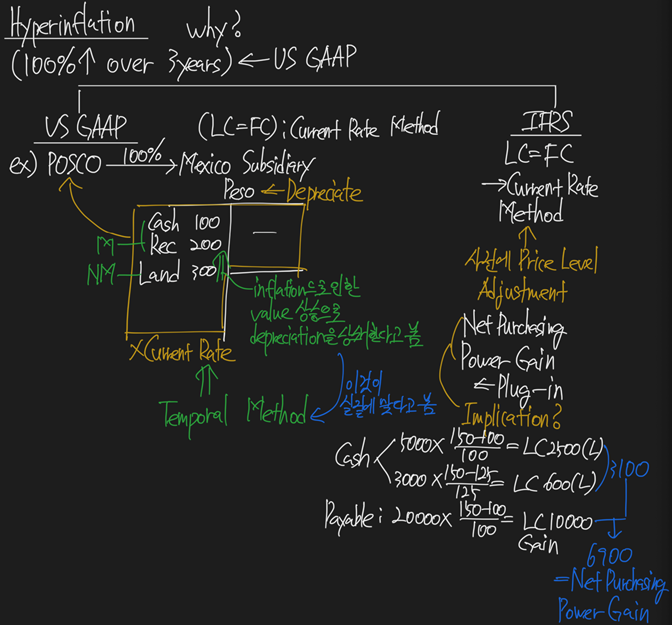 Hyperinflation why?
(100%↑ over 3years) ← US GAAP
US GAAP
(LC=FC) : Current Rate Method
ex) POSCO 100% → Mexico Subsidiary
Peso ← Depreciate
Cash 100
M Rec 200
NM Land 300
inflation으로 인한
value 상승으로
depreciation을 상쇄한다고 봄
X Current Rate
Temporal Method
이것이
실질에 맞다고 봄
IFRS
LC=FC
→ Current Rate
Method
사전에 Price Level
Adjustment
Net Purchasing
Power Gain
← Plug-in
Implication?
Cash
5000 × (150-100)/100 = LC 2500 (L)
3000 × (150-125)/125 = LC 600 (L)
3100
Payable : 20000 × (150-100)/100 = LC 10000
Gain
6900
= Net Purchasing
Power Gain